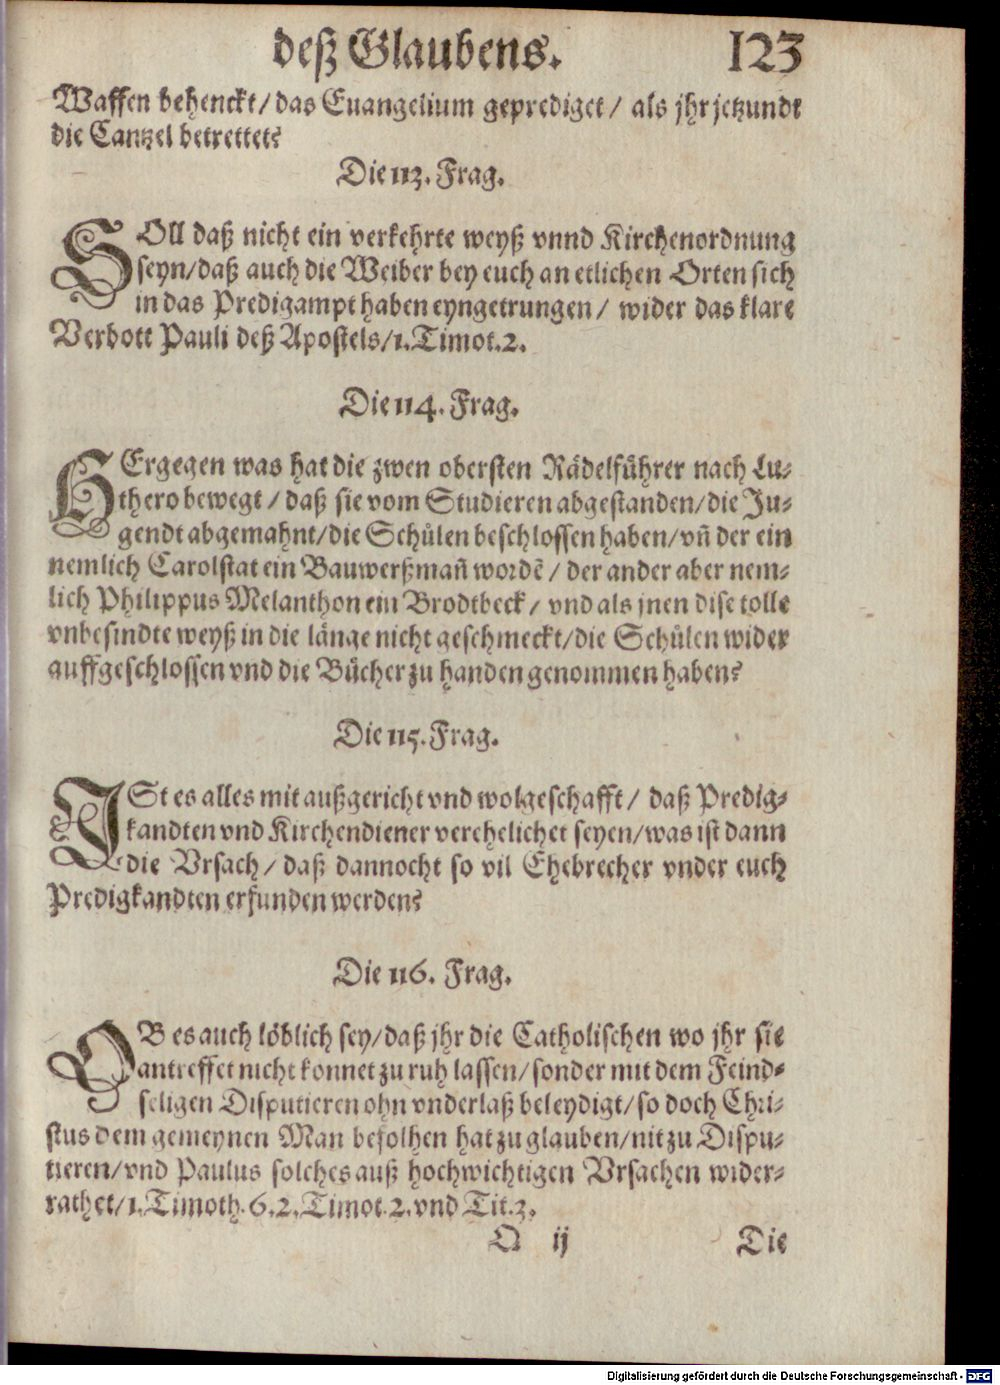 deß Glaubens. 123
Waffen behenckt/ das Euangelium geprediget/ als jhr jetzundt
die Cantzel betrettet?
Die 113. Frag.
SOll daß nicht ein verkehrte weyß vnnd Kirchenordnung
seyn/ daß auch die Weiber bey euch an etlichen Orten sich
in das Predigampt haben eyngetrungen/ wider das klare
Verbott Pauli deß Apostels/ 1. Timot. 2.
Die 114. Frag.
HErgegen was hat die zwen obersten Rädelführer nach Lu-
thero bewegt/ daß sie vom Studieren abgestanden/ die Ju-
gendt abgemahnt/ die Schůlen beschlossen haben/ vn̄ der ein
nemlich Carolstat ein Bauwerßman̄ wordē/ der ander aber nem-
lich Philippus Melanthon ein Brodtbeck/ vnd als jnen dise tolle
vnbesindte weyß in die länge nicht geschmeckt/ die Schůlen wider
auffgeschlossen vnd die Bücher zu handen genommen haben?
Die 115. Frag.
ISt es alles mit außgericht vnd wolgeschafft/ daß Predig-
kandten vnd Kirchendiener verehelichet seyen/ was ist dann
die Vrsach/ daß dannocht so vil Ehebrecher vnder euch
Predigkandten erfunden werden?
Die 116. Frag.
OB es auch löblich sey/ daß jhr die Catholischen wo jhr sie
antreffet nicht konnet zu ruh lassen/ sonder mit dem Feind-
seligen Disputieren ohn vnderlaß beleydigt/ so doch Chri-
stus dem gemeynen Man befolhen hat zu glauben/ nit zu Dispu-
tieren/ vnd Paulus solches auß hochwichtigen Vrsachen wider-
rathet/ 1. Timoth. 6. 2. Timot. 2. vnd Tit. 3.
Q ij Die
Digitalisierung gefördert durch die Deutsche Forschungsgemeinschaft - DFG